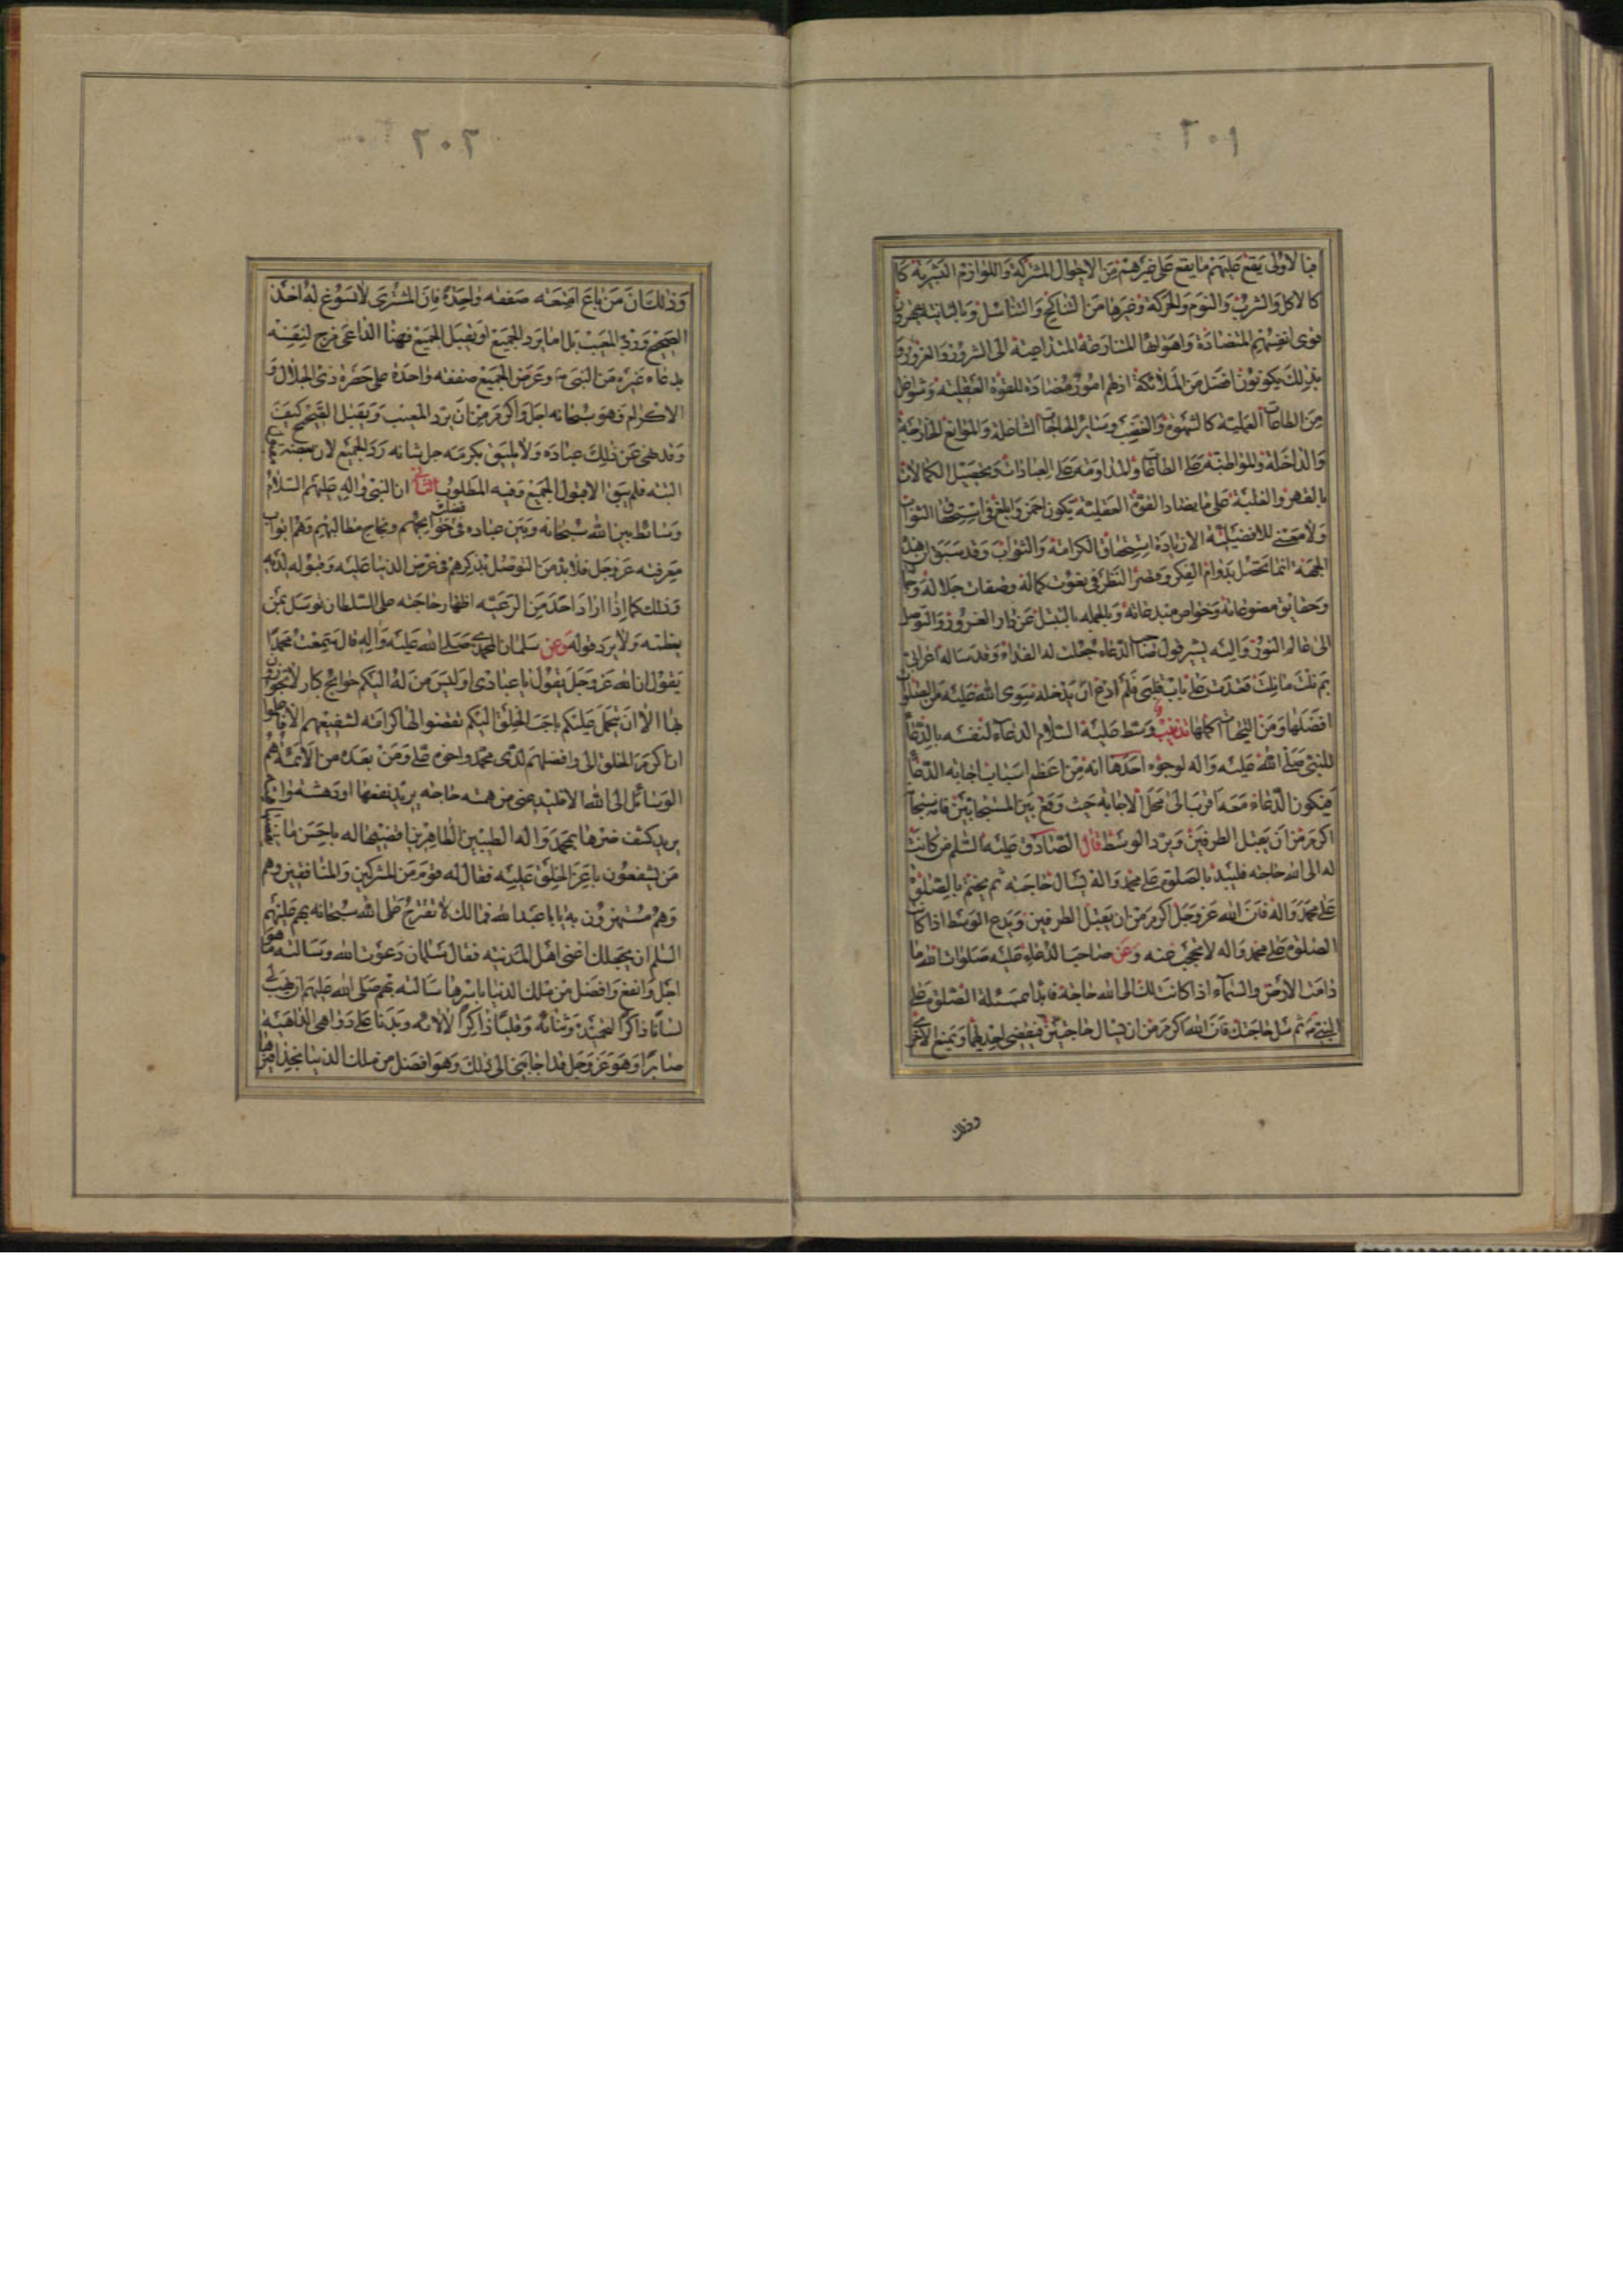 ٢٠١
فبالاولى يقع عليهم ما يقع على غيرهم من الاحوال المشتركة واللوازم البشرية كا
كالاكل والشرب والنوم والحركة وغيرها من التناكح والتناسل وبالثانية يقهرون
قوى انفسهم المتضادة واهوائها المتنازعة المتداعية الى الشرور والغرور و
بذلك يكونون افضل من الملائكة اذ لهم امور مضادة للقوة العقلية وشواغل
من الطاعات العملية كالشهوة والغضب وسائر الحاجات الشاغلة والموانع الخارجة
والداخلة والمواظبة على الطاعات والمداومة على العبادات وتحصيل الكمالات
بالقهر والغلبة على ما يضاد القوة العقلية يكون احمز وابلغ فى استحقاق الثواب
ولا معنى للافضلية الا زيادة استحقاق الكرامة والثواب وقد سبق ان هذه
الجهة انما تحصل بدوام الفكر وقصر النظر فى نعوت كماله وصفات جلاله و
وحقايق مصنوعاته وخواص مبدعاته وبالجملة بالتبتل عن دار الغرور والتوصل
الى عالم النور واليه يشير قول صاحب الدعاء جعلت له الفداء وقد ساله اعرابى
بم نلت ما نلت قعدت على باب قلبى فلم ادع ان يدخله سوى الله عليه من الصلوات
افضلها ومن التحيات اكملها تذنيب وسط عليه السلام الدعاء لنفسه بالدعاء
للنبى صلى الله عليه واله لوجوه احدها انه من اعظم اسباب اجابة الدعاء
فيكون الدعاء معه اقرب الى محل الاجابة حيث وقع بين المستجابتين فانه سبحانه
اكرم من ان يقبل الطرفين ويرد الوسط قال الصادق عليه السلم من كانت
له الى الله حاجة فليبدء بالصلوة على محمد واله يسال حاجته ثم يختم بالصلوة
على محمد واله فان الله عز وجل اكرم من ان يقبل الطرفين ويدع الوسط اذا كانت
الصلوة على محمد واله لا تحجب عنه وعن صاحب الدعاء عليه صلوات الله ما
دامت الارض والسماء اذا كانت لك الى الله حاجة فابدا بمسئلة الصلوة على
النبى ثم سل حاجتك فان الله اكرم من ان يسال حاجتين فيقضى احديهما ويمنع الاخرى
وذلك
٢٠٢
وذلك ان من باع امتعة صفقة واحدة فان المشترى لا يسوغ له اخذ
الصحيح ورد المعيب بل اما يرد الجميع او يقبل الجميع فهنا الداعى مزج لنفسه
بدعاء غيره من النبى وعرض الجميع صفقة واحدة على حضرة ذى الجلال و
الاكرام وهو سبحانه اجل واكرم من ان يرد المعيب ويقبل الصحيح كيف
وقد نهى عن ذلك عباده ولا يليق بكرمه جل شانه رد الجميع لان بعضه
البتة فلم يبق الا قبول الجميع وفيه المطلوب الثانى ان النبى واله عليهم السلام
وسائط بين الله سبحانه وبين عباده فى قضاء حوايجهم ونجاح مطالبهم وهم ابواب
معرفته عز وجل فلا بد من التوصل بذكرهم فى عرض الدنيا عليه وقبوله لديه
وذلك كما اذا اراد احد من الرعية اظهار حاجته على السلطان توسل بمن
يعظمه ولا يرد قوله وعن سلمان المحمدى صلى الله عليه واله قال سمعت محمدا
يقول ان الله عز وجل يقول يا عبادى اوليس من له اليكم حوائج كبار لا تجودون
بها الا ان يتحمل عليكم باحب الخلق اليكم تقضوا لها كرامة لشفيعهم الا فاعلموا
ان اكرم الخلق الى وافضلهم لدى محمد واخوه على ومن بعده من الائمة هم
الوسائل الى الله الا فليدعنى من همته حاجة يريد نفعها او دهشته
يريد كشف ضرها بمحمد واله الطيبين الطاهرين اقضيها له باحسن ما يقضيها
من يشفعون باعز الخلق عليه فقال له قوم من المشركين والمنافقين وهم
وهم مستهزؤن به يا ابا عبد الله فما لك لا تقترح على الله سبحانه بهم عليهم
السلم ان يجعلك اغنى اهل المدينة فقال سلمان دعوت الله وسالته ما هو
اجل وانفع وافضل من ملك الدنيا باسرها سالته بهم صلى الله عليهم ان يهب لى
لسانا ذاكرا لتحميده وثنائه وقلبا ذاكرا لالائه وبدنا على دواهى الداهية
صابرا وهو عز وجل قد اجابنى الى ذلك وهو افضل من ملك الدنيا بحذافيرها